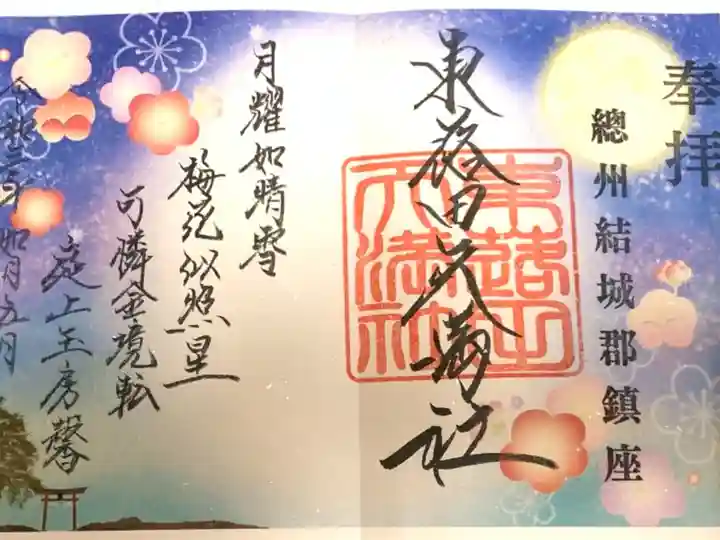 奉拝
總州結城郡鎮座
東蕗田天満社
東蕗田天満社
月耀如晴雪
梅花似照星
可憐金鏡転
庭上玉房馨
令和三年如月五日